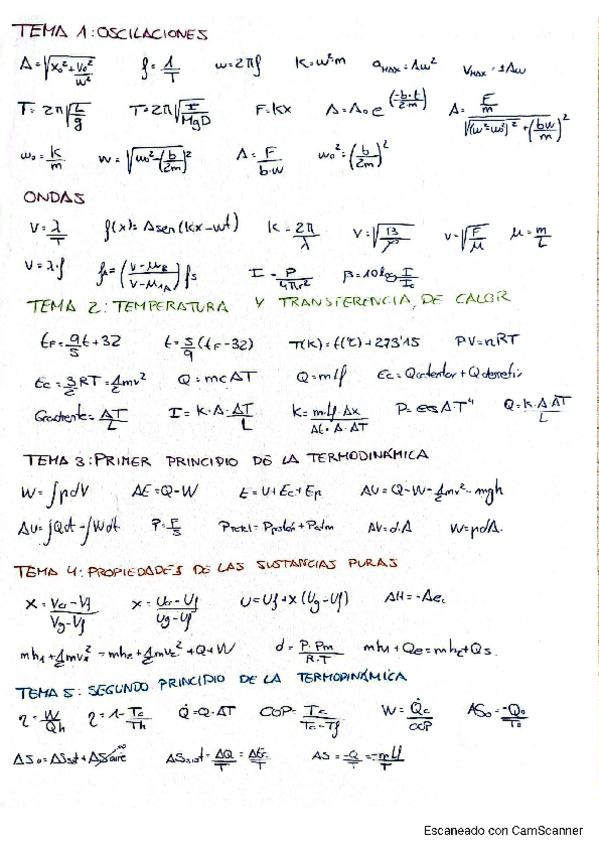 TEMA 1: OSCILACIONES
A = √(x₀² + v₀²/w²)   f = 1/T   w = 2πf   K = w²m   a_MAX = Aw²   V_MAX = ±Aw
T = 2π√(L/g)   T = 2π√(I/MgD)   F = Kx   A = A₀ e^(-b·t/2m)   A = (F/m)/√((w²-w₀²)² + (bw/m)²)
w₀ = K/m   w = √(w₀² - (b/2m)²)   A = F/(b·w)   w₀² = (b/2m)²
ONDAS
V = λ/T   f(x) = A sen(Kx - wt)   K = 2π/λ   V = √(B/ρ)   V = √(F/μ)   μ = m/L
V = λ·f   f_R = ((V - μ_R)/(V - μ_A)) f_s   I = P/4πr²   β = 10 log I/I₀
TEMA 2: TEMPERATURA Y TRANSFERENCIA DE CALOR
t_F = 9/5 t + 32   t = 5/9 (t_F - 32)   T(K) = t(℃) + 273'15   PV = nRT
Ec = 3/2 RT = 1/2 mv²   Q = mcΔT   Q = mLf   Ec =
Gradiente = ΔT/L   I = K·A·ΔT/L   K = m·Lf·Δx/(Δt·A·ΔT)   P = eσAT⁴   Q = K·A·ΔT/L
TEMA 3: PRIMER PRINCIPIO DE LA TERMODINÁMICA
W = ∫pdV   ΔE = Q-W   E = U + Ec + Ep   ΔU = Q - W - 1/2 mv² - mgh
ΔU = ∫Q̇dt - ∫Ẇdt   P = F/S   Ptotal = Ppistón + Patm   ΔV = d·A   W = pdA
TEMA 4: PROPIEDADES DE LAS SUSTANCIAS PURAS
X = (Vcr - Vf)/(Vg - Vf)   X = (Ucr - Uf)/(Ug - Uf)   U = Uf + X (Ug - Uf)   ΔH = -ΔEc
mh₁ + 1/2 mv₁² = mh₂ + 1/2 mv₂² + Q + W   d = P·Pm/R.T   mh₁ + Qe = mh₂ + Qs
TEMA 5: SEGUNDO PRINCIPIO DE LA TERMODINÁMICA
η = W/Qh   η = 1 - Tc/Th   Q̇ = Q·ΔT   COP = Tc/(Tc - Tf)   W = Q̇c/COP   ΔS₀ = -Q₀/T₀
ΔS₀ = ΔSsist + ΔSaire   ΔSsist = ΔQ/T = ΔEc/T   ΔS = Q/T = -mLf/T
Escaneado con CamScanner